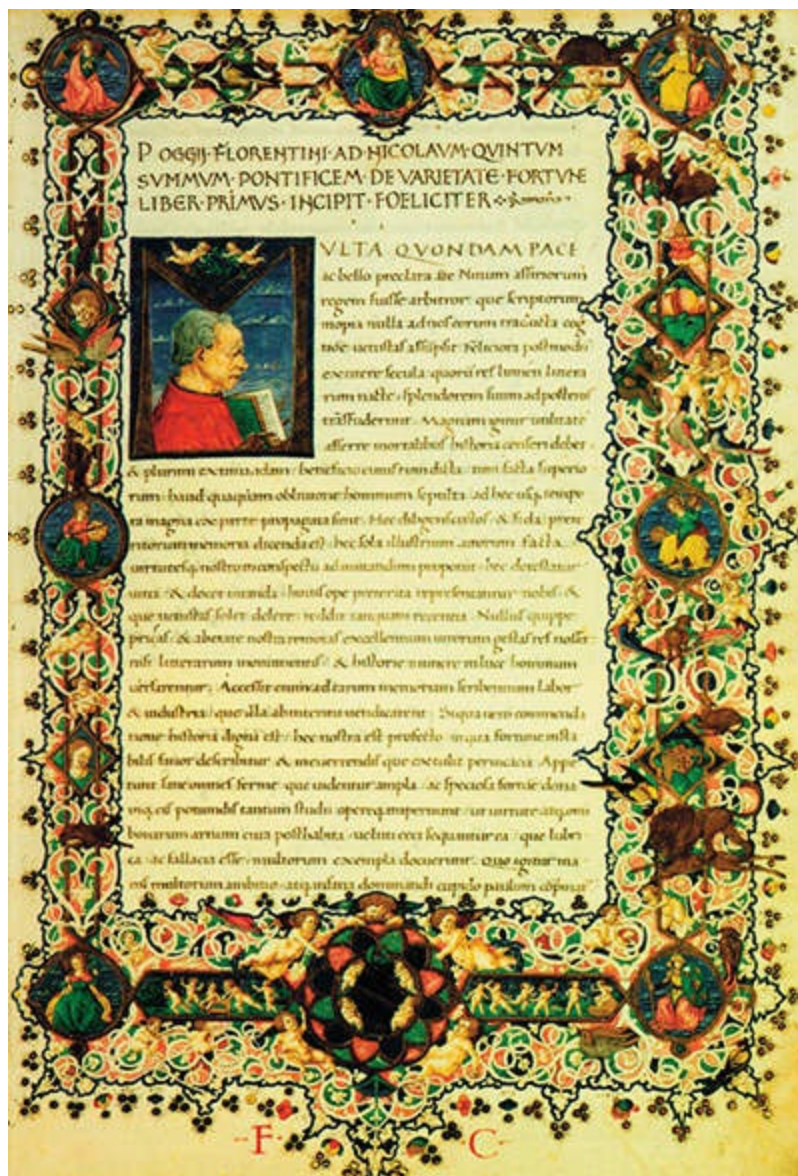 POGGII·FLORENTINI·AD·NICOLAVM·QVINTVM
SVMMVM·PONTIFICEM·DE VARIETATE·FORTVNE
LIBER·PRIMVS·INCIPIT·FOELICITER
MVLTA QVONDAM PACE
ac bello preclara Ninum assiriorum
regem fuisse arbitror que scriptorum
inopia nulla ad nos eorum
uetustas Feliciora
secula quorum res lumen littera
rum splendorem suum ad posteros
Magnam igitur utilitatē
afferre mortalibus historia censeri debet
& plurium beneficio cuius tum dicta tum facta superio
rum haud quaquam obliuione hominum sepulta ad hec usq; tempo
ra magna ex parte propagata sint Hec & fida prete
ritorum memoria dicenda est hec sola illustrium uirorum facta
uirtutesq; nostro in conspectu ad imitandum proponit hec detestatur
uitia & docet uitanda huius ope preterita representantur nobis &
que uetustas solet delere reddit tanquam recentia Nullus quippe
priscas & ab etate nostra remotas excellentium uirorum gestas res nosset
nisi litterarum monumentis & historie munere in luce hominum
uersarentur Accessit enim ad tantam memoriam scribentium labor
& industria que illa ab interitu uendicarent Siqua uero commenda
tione historia digna est hec nostra est profecto in qua fortune insta
bilis fauor describitur & in euertendis que extulit pernicacia Appe
tunt sane omnes ferme que uidentur ampla ac speciosa fortune dona
inq; eis potiundis tantum studii opereq; impertiunt ut uirtute atq; omni
bonarum artium cura posthabita ueluti ceci sequantur ea que lubri
ca ac fallacia esse multorum exempla docuerunt Quo igitur ma
multorum ambitio atq; dominandi cupido paulum
·F· C·